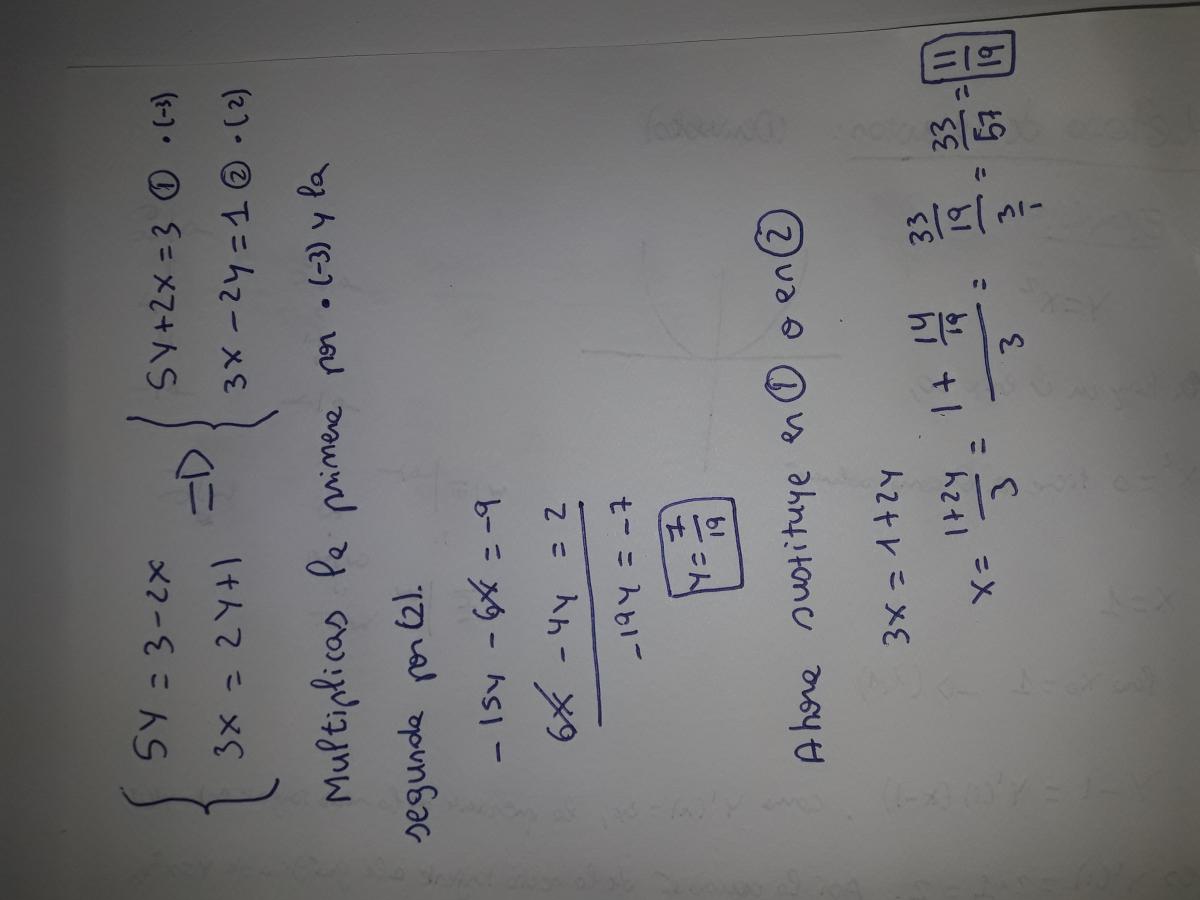 5y = 3 - 2x => 5y + 2x = 3 ① · (-3)
3x = 2y + 1 3x - 2y = 1 ② · (2)
Multiplicas la primera por · (-3) y la
segunda por (2).
-15y - 6x = -9
6x - 4y = 2
-19y = -7
y = 7/19
Ahora sustituye en ① o en ②
3x = 1 + 2y
x = (1+2y)/3 = (1 + 14/19)/3 = (33/19)/(3/1) = 33/57 = 11/19